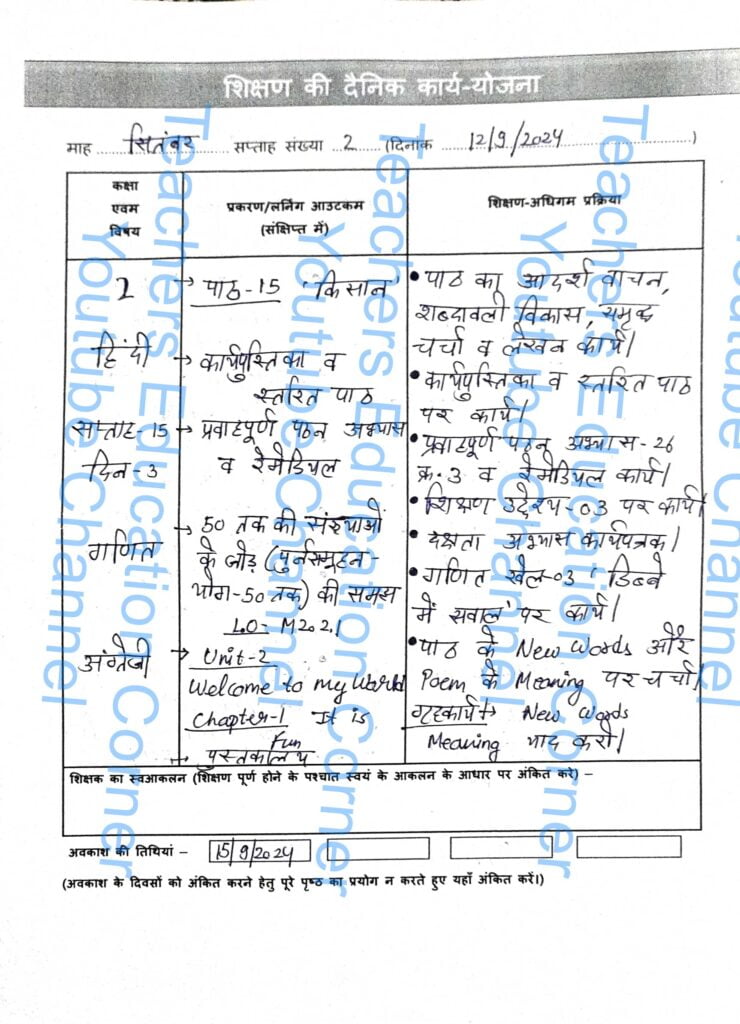 शिक्षण की दैनिक कार्य-योजना
माह सितंबर सप्ताह संख्या 2 (दिनाक 12/9/2024)
कक्षा
एवम
विषय
प्रकरण/लर्निंग आउटकम
(संक्षिप्त में)
शिक्षण-अधिगम प्रक्रिया
2
हिंदी
सप्ताह-15
दिन-3
→ पाठ-15 'किसान'
→ कार्यपुस्तिका व
स्तरित पाठ
→ प्रवाहपूर्ण पठन अभ्यास
व रेमेडियल
• पाठ का आदर्श वाचन,
शब्दावली विकास, समृद्ध
चर्चा व लेखन कार्य।
• कार्यपुस्तिका व स्तरित पाठ
पर कार्य।
• प्रवाहपूर्ण पठन अभ्यास-26
क्र.3 व रेमेडियल कार्य।
गणित
→ 50 तक की संख्याओं
के जोड़ (पुर्नसमूहन-
योग-50 तक) की समझ
LO- M202.1
• शिक्षण उद्देश्य-03 पर कार्य।
• दक्षता अभ्यास कार्यपत्रक।
• गणित खेल-03 'डिब्बे
में सवाल' पर कार्य।
अंग्रेजी
→ Unit-2
Welcome to my World
Chapter-1 It is
Fun
→ पुस्तकालय
• पाठ के New Words और
Poem के Meaning पर चर्चा।
गृहकार्य→ New Words
Meaning याद करो।
शिक्षक का स्वआकलन (शिक्षण पूर्ण होने के पश्चात स्वयं के आकलन के आधार पर अंकित करे) –
अवकाश की तिथियां – 15/9/2024
(अवकाश के दिवसों को अंकित करने हेतु पूरे पृष्ठ का प्रयोग न करते हुए यहाँ अंकित करें।)
Teachers Education Corner
Youtube Channel
Teachers Education Corner
Youtube Channel
Teachers Education Corner
Youtube Channel